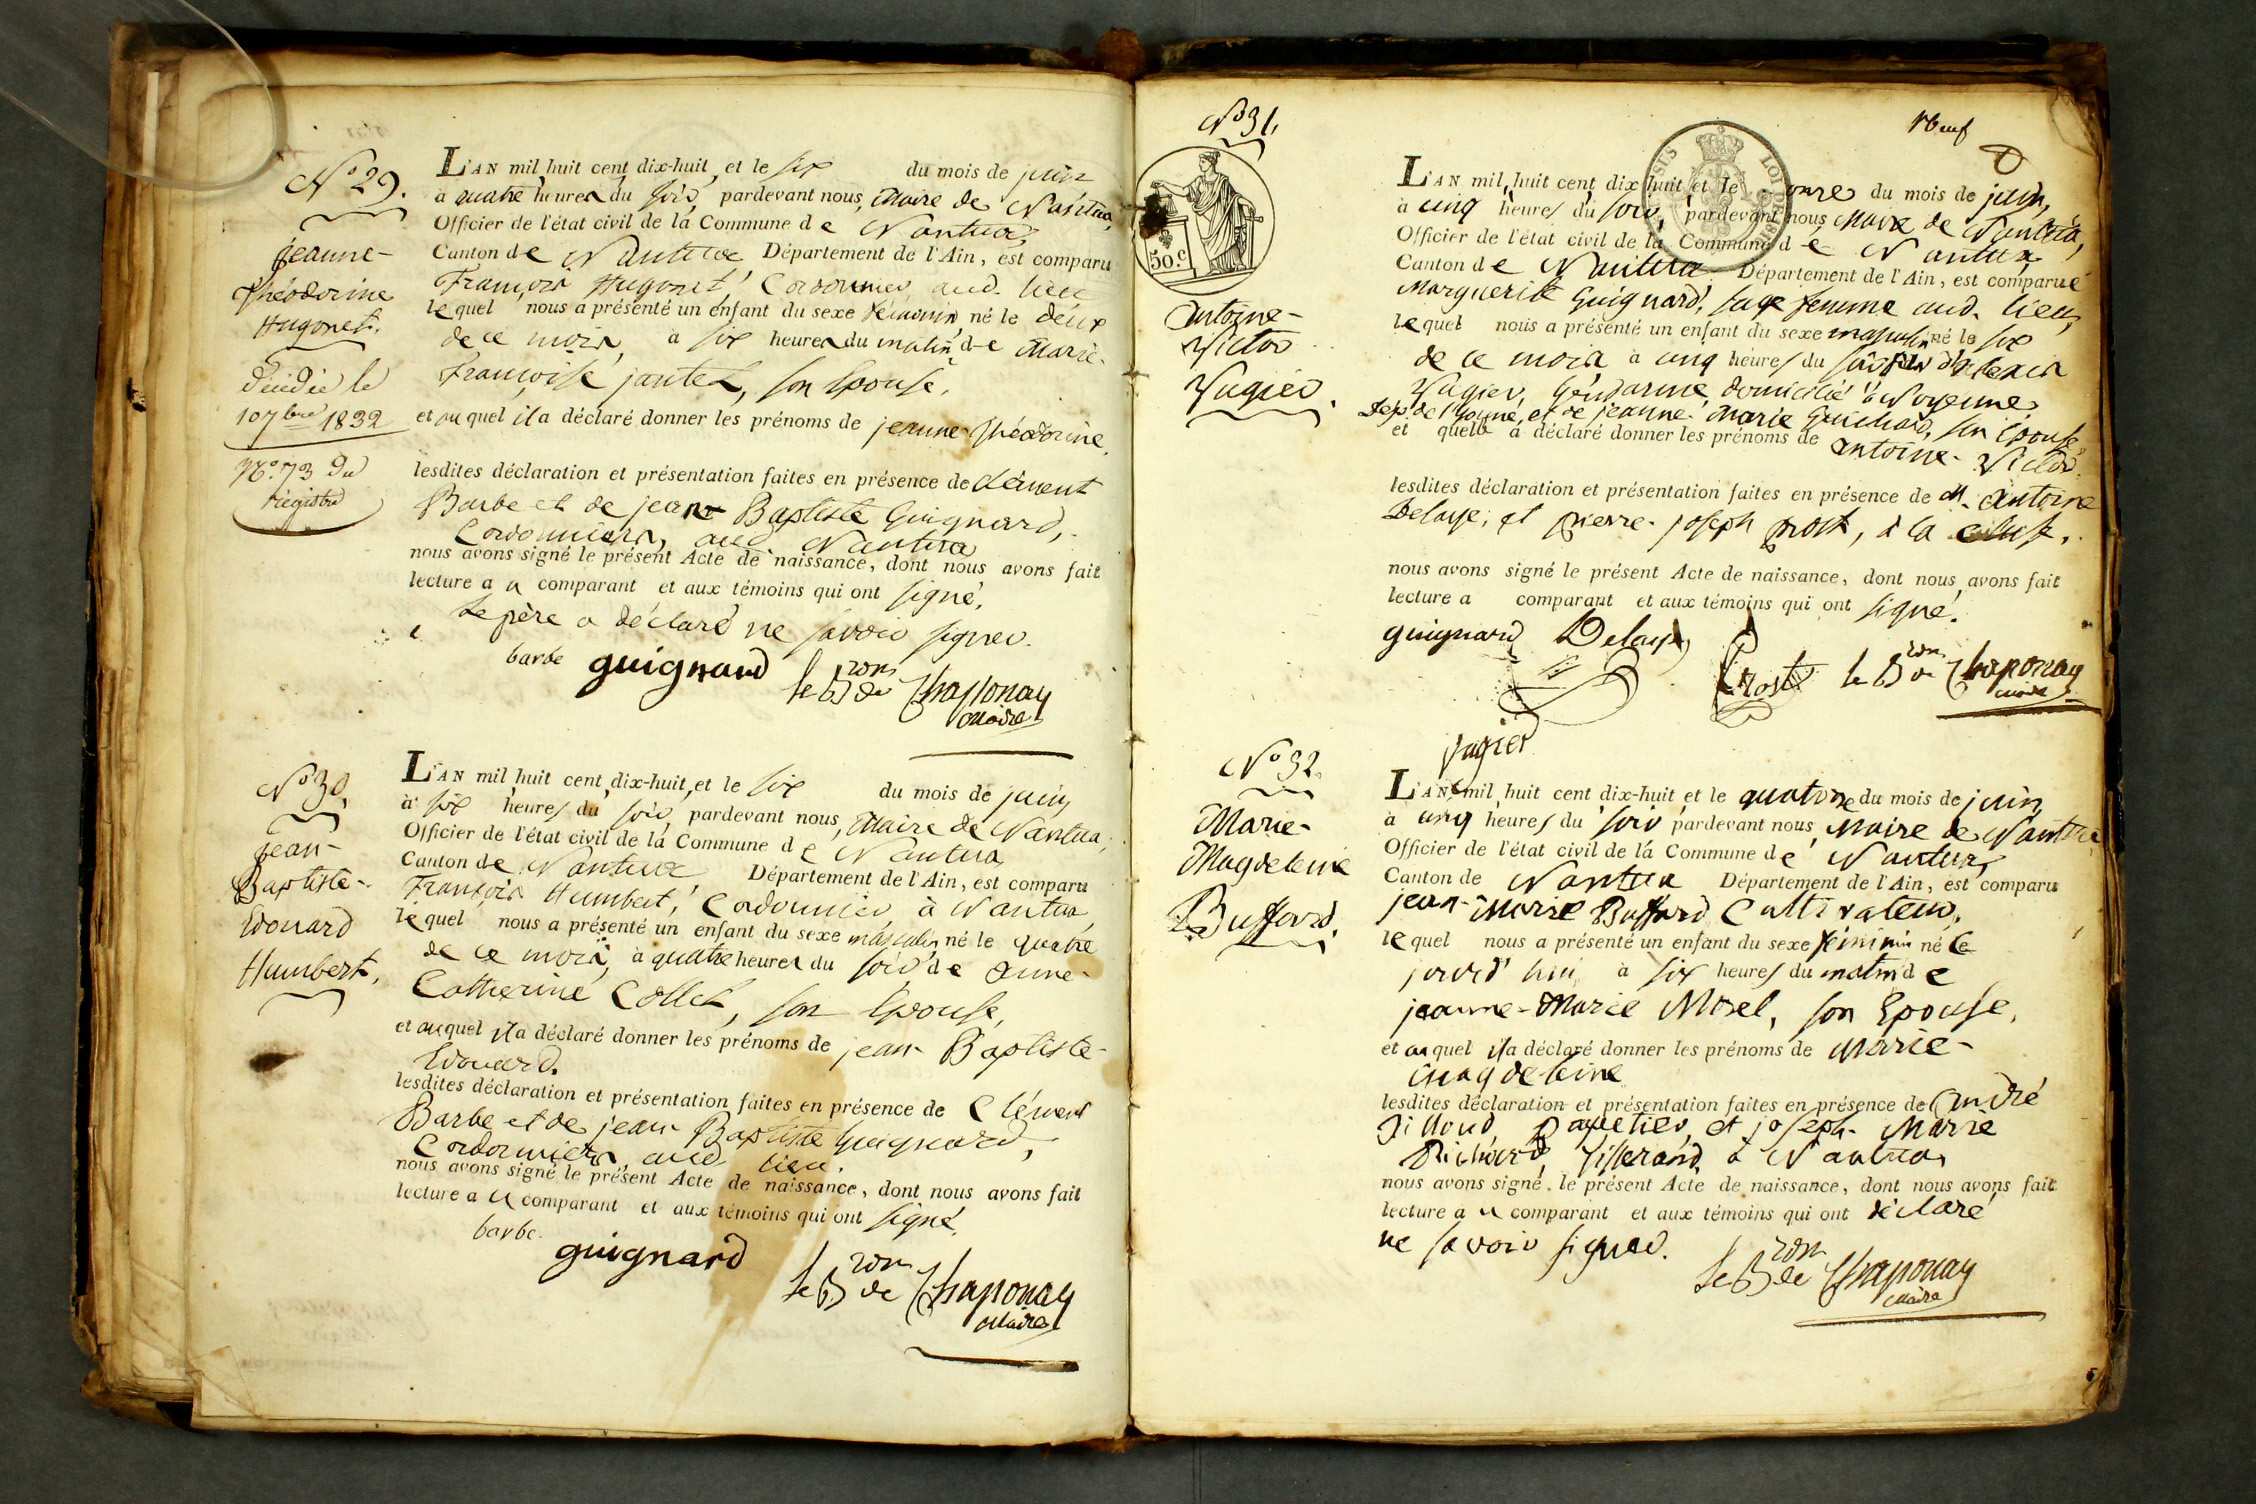 N.° 29.
Jeanne-
Théodorine
Hugonet.
décédée le
10 7bre 1832
N.° 73 du
registre
L'AN mil huit cent dix-huit, et le six du mois de juin
à quatre heures du soir, pardevant nous, Maire de Nantua,
Officier de l'état civil de la Commune de Nantua,
Canton de Nantua Département de l'Ain, est comparu
François Hugonet, Cordonnier aud. lieu
lequel nous a présenté un enfant du sexe féminin né le deux
de ce mois, à six heures du matin de Marie-
Françoise jantet, son Epouse,
et auquel il a déclaré donner les prénoms de jeanne-Théodorine.
lesdites déclaration et présentation faites en présence de Clément
Barbe et de jean Baptiste Guignard,
Cordonniers, aud. Nantua
nous avons signé le présent Acte de naissance, dont nous avons fait
lecture au comparant et aux témoins qui ont signé.
Le père a déclaré ne savoir signer.
barbe guignard le Bron de Chaponay
Maire
N.° 30.
Jean-
Baptiste-
Edouard
Humbert.
L'AN mil huit cent dix-huit, et le six du mois de juin
à six heures du soir, pardevant nous, Maire de Nantua,
Officier de l'état civil de la Commune de Nantua
Canton de Nantua Département de l'Ain, est comparu
François Humbert, Cordonnier à Nantua
lequel nous a présenté un enfant du sexe masculin né le quatre
de ce mois, à quatre heures du soir de Anne-
Catherine Collet, son Epouse,
et auquel il a déclaré donner les prénoms de jean Baptiste-
Edouard.
lesdites déclaration et présentation faites en présence de Clément
Barbe et de jean Baptiste Guignard,
Cordonniers, aud. lieu.
nous avons signé le présent Acte de naissance, dont nous avons fait
lecture au comparant et aux témoins qui ont signé.
barbe.
guignard
le Bron de Chaponay
Maire
neuf
N.° 31.
50.c
Antoine-
Victor
Vugier.
L'AN mil huit cent dix huit et le onze du mois de juin,
à cinq heures du soir, pardevant nous Maire de Nantua,
Officier de l'état civil de la Commune de Nantua
Canton de Nantua Département de l'Ain, est comparue
Marguerite Guignard, sage femme aud. lieu,
lequel nous a présenté un enfant du sexe masculin né le six
de ce mois à cinq heures du soir fils d'alexis
Vugier, Gendarme, domicilié à
Dép.t de et de jeanne-Marie Guichard, son Epouse
et quelle a déclaré donner les prénoms de antoine-Victor.
lesdites déclaration et présentation faites en présence de M. Antoine
Delaye, et pierre-joseph prost, à la cluse.
nous avons signé le présent Acte de naissance, dont nous avons fait
lecture a comparant et aux témoins qui ont signé.
guignard Delaye Prost le Bron de Chaponay
maire
vugier
N.° 32.
Marie-
Magdeleine
Buffard.
L'AN mil huit cent dix-huit et le quatorze du mois de juin
à cinq heures du soir pardevant nous Maire de Nantua
Officier de l'état civil de la Commune de Nantua,
Canton de Nantua Département de l'Ain, est comparu
jean-Marie Buffard Cultivateur,
lequel nous a présenté un enfant du sexe féminin né ce
jourd'hui à six heures du matin de
jeanne-Marie Morel, son Epouse,
et auquel il a déclaré donner les prénoms de Marie-
Magdeleine
lesdites déclaration et présentation faites en présence de André
Papetier, et joseph-Marie
Richard, Tisserand, à Nantua
nous avons signé le présent Acte de naissance, dont nous avons fait
lecture au comparant et aux témoins qui ont déclaré
ne savoir signer.
le Bron de Chaponay
Maire